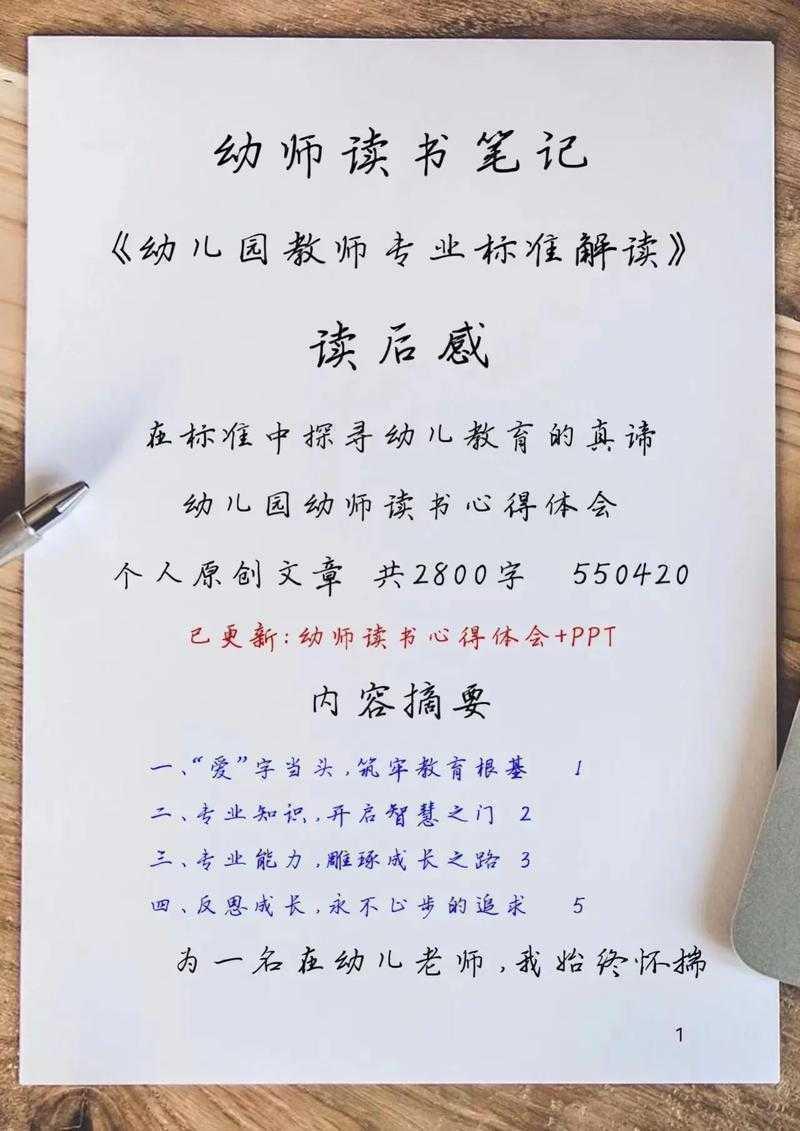 幼师读书笔记
《幼儿园教师专业标准解读》
读后感
在标准中探寻幼儿教育的真谛
幼儿园幼师读书心得体会
个人原创文章 共2800字 550420
已更新:幼师读书心得体会+PPT
内容摘要
一、“爱”字当头,筑牢教育根基 1
二、专业知识,开启智慧之门 2
三、专业能力,雕琢成长之路 3
四、反思成长,永不止步的追求 5
为一名在幼儿老师,我始终怀揣
1